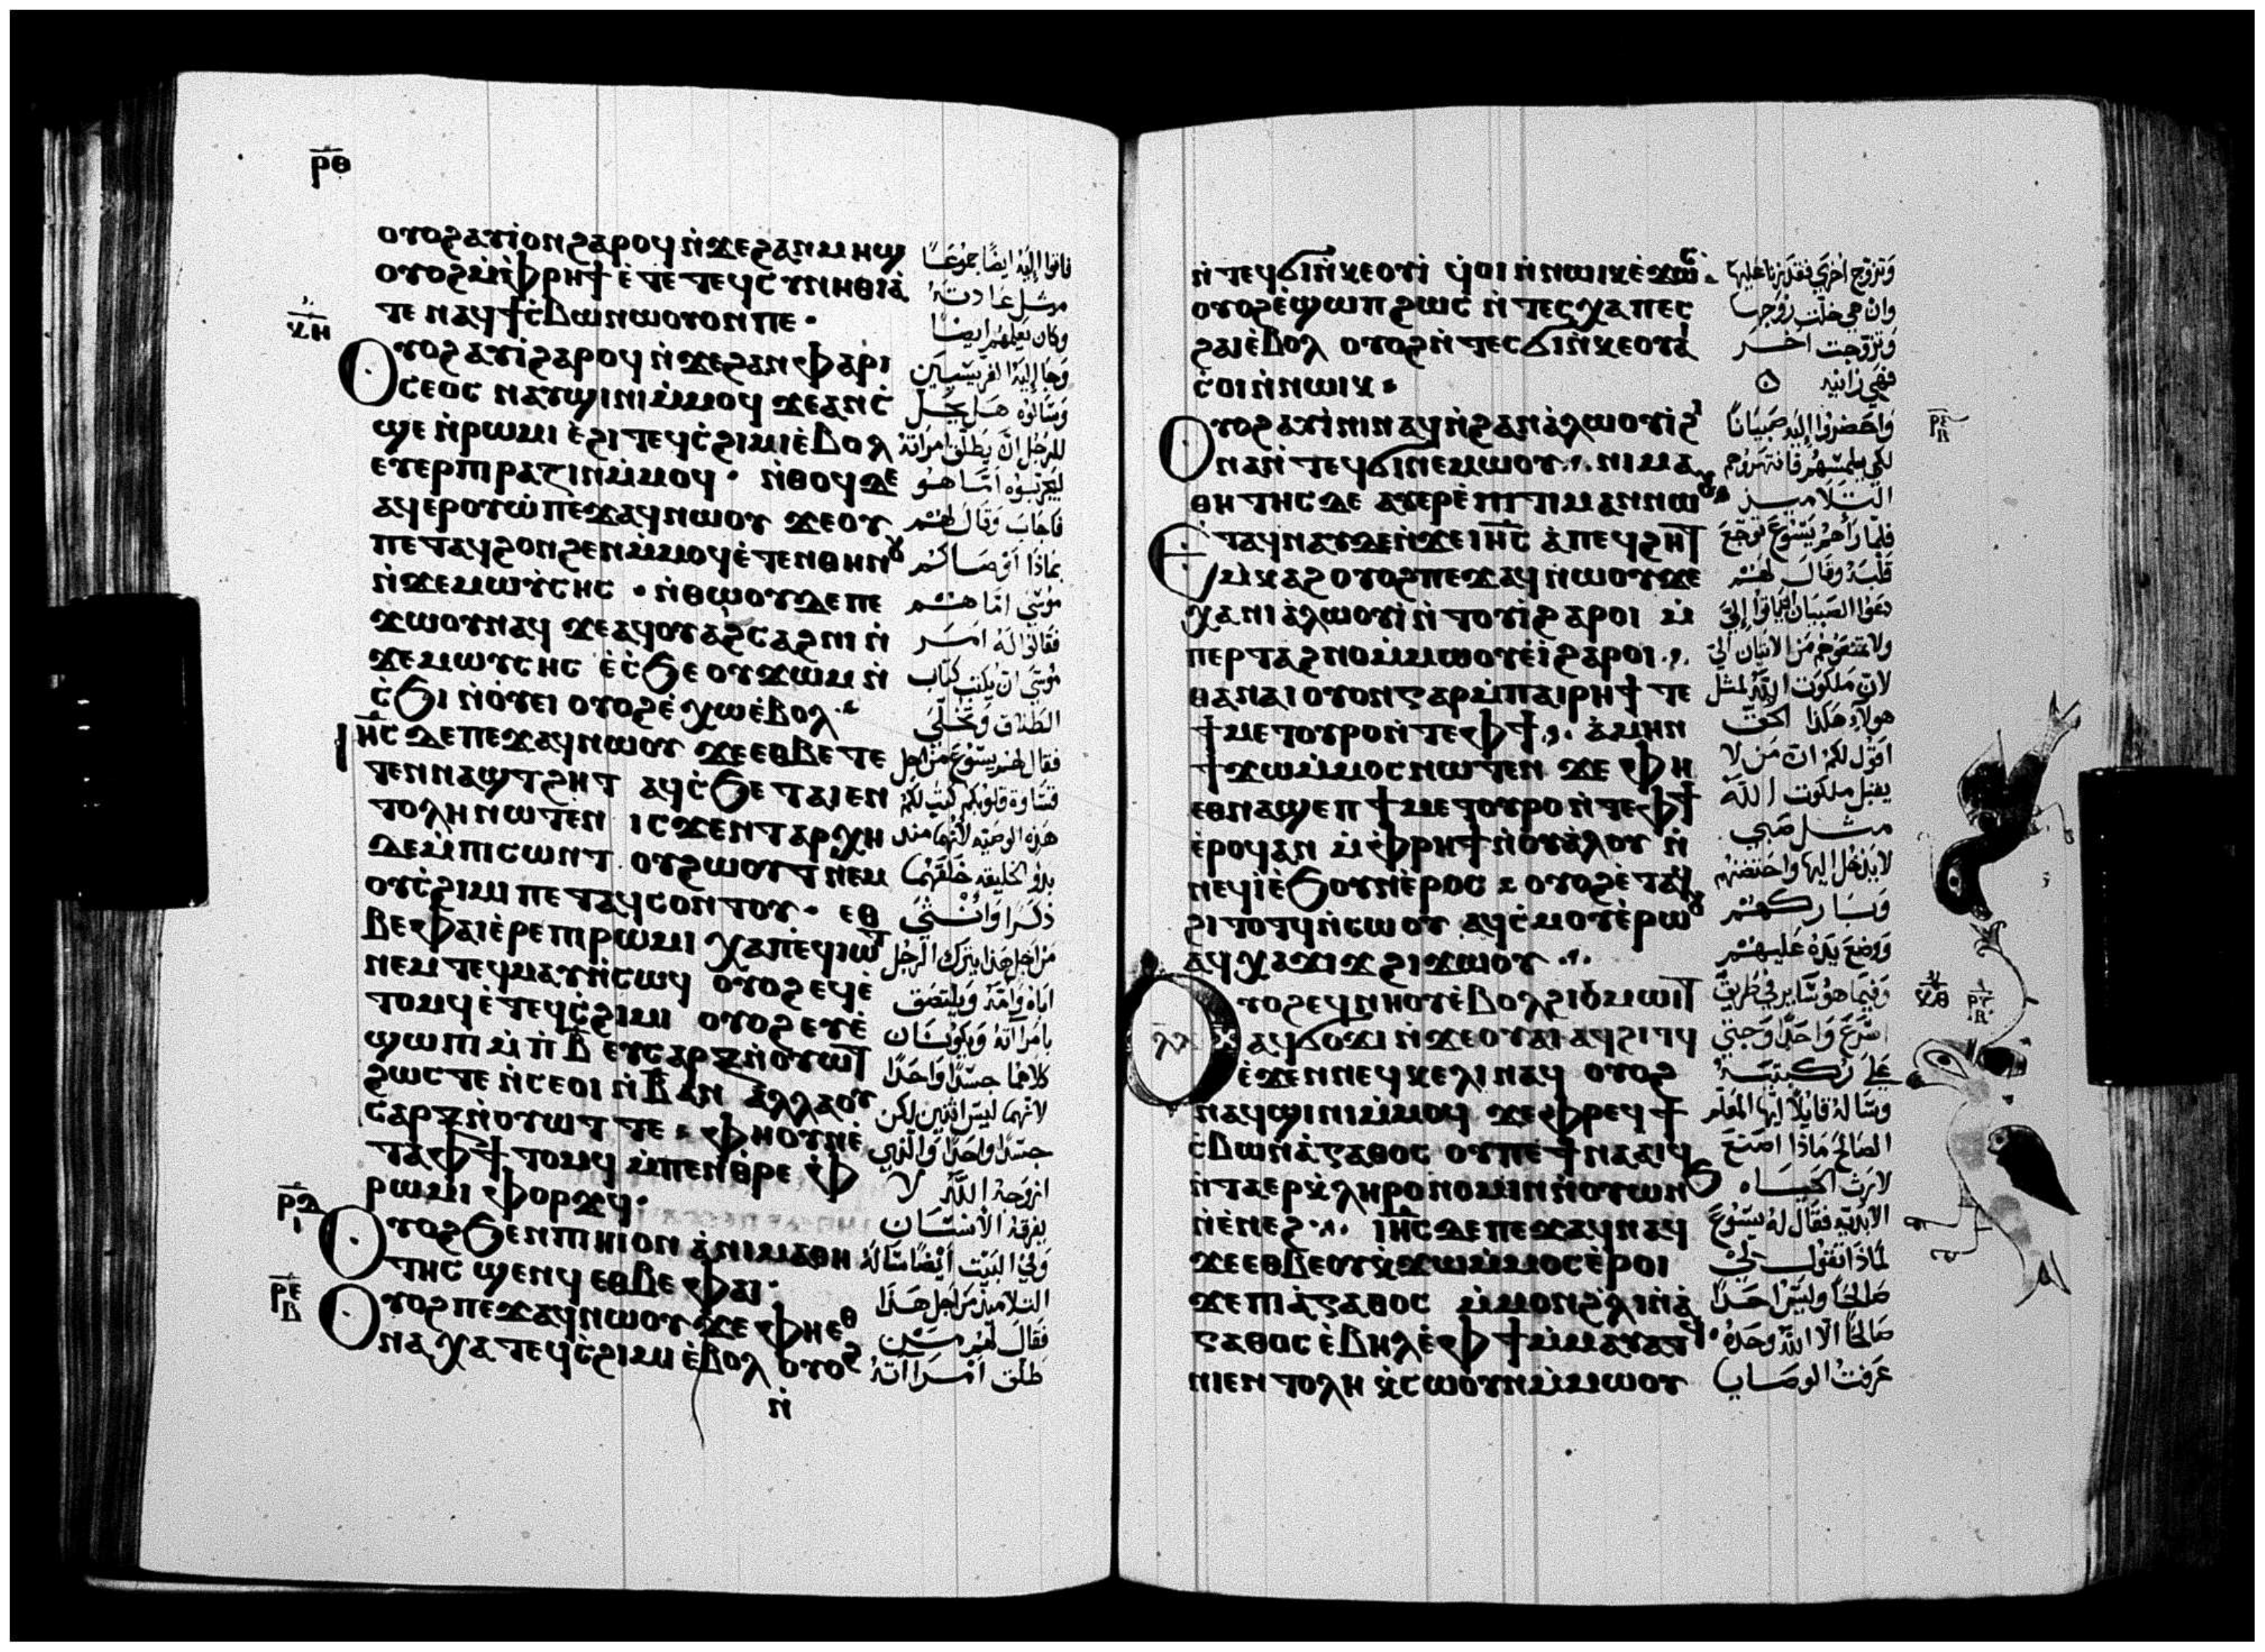 ⲣ̅ⲑ̅
ⲟⲩⲟϩ ⲁⲩⲓ̀ ⲟⲛ ϩⲁⲣⲟϥ ⲛ̀ϫⲉ ϩⲁⲛⲙⲏϣ
ⲟⲩⲟϩ ⲙ̀ⲫ̀ⲣⲏϯ ⲉ̀ⲧⲉ ⲧⲉϥⲥⲩⲛⲏⲑⲓⲁ̀
ⲧⲉ ⲛⲁϥϯⲥ̀ⲃⲱ ⲛⲱⲟⲩ ⲟⲛ ⲡⲉ·
ⲕⲏ
Ⲟⲩⲟϩ ⲁⲩⲓ̀ ϩⲁⲣⲟϥ ⲛ̀ϫⲉ ϩⲁⲛⲫⲁⲣⲓ
ⲥⲉⲟⲥ ⲛⲁⲩϣⲓⲛⲓ ⲙ̀ⲙⲟϥ ϫⲉ ⲁⲛ ⲥ̀
ϣⲉ ⲛ̀ⲣⲱⲙⲓ ⲉ̀ϩⲓ ⲧⲉϥⲥ̀ϩⲓⲙⲓ ⲉ̀ⲃⲟⲗ
ⲉⲩⲉⲣⲡⲓⲣⲁⲍⲓⲛ ⲙ̀ⲙⲟϥ· ⲛ̀ⲑⲟϥ ⲇⲉ
ⲁϥⲉⲣⲟⲩⲱ̀ ⲡⲉϫⲁϥ ⲛⲱⲟⲩ ϫⲉ ⲟⲩ
ⲡⲉⲧⲁϥϩⲟⲛϩⲉⲛ ⲙ̀ⲙⲟϥ ⲉ̀ⲧⲉⲛⲑⲏⲛⲟⲩ
ⲛ̀ϫⲉ ⲙⲱⲩ̀ⲥⲏⲥ· ⲛ̀ⲑⲱⲟⲩ ⲇⲉ ⲡⲉ
ϫⲱⲟⲩ ⲛⲁϥ ϫⲉ ⲁϥⲟⲩⲁϩⲥⲁϩⲛⲓ ⲛ̀
ϫⲉ ⲙⲱⲩⲥⲏⲥ ⲉ̀ⲥ̀ϧⲉ ⲟⲩϫⲱⲙ ⲛ̀
ⲥ̀ϧⲓ ⲛ̀ⲟⲩⲉⲓ ⲟⲩⲟϩ ⲉ̀ⲭⲱ ⲉ̀ⲃⲟⲗ·
Ⲓⲏ̅ⲥ̅ ⲇⲉ ⲡⲉϫⲁϥ ⲛⲱⲟⲩ ϫⲉ ⲉⲑⲃⲉ ⲧⲉ
ⲧⲉⲛⲛⲁϣⲧϩⲏⲧ ⲁϥⲥ̀ϧⲉ ⲧⲁⲓⲉⲛ
ⲧⲟⲗⲏ ⲛⲱⲧⲉⲛ ⲓⲥϫⲉⲛ ⲧⲁⲣⲭⲏ
ⲇⲉ ⲙ̀ⲡⲓⲥⲱⲛⲧ ⲟⲩϩⲱⲟⲩⲧ ⲛⲉⲙ
ⲟⲩⲥ̀ϩⲓⲙⲓ ⲡⲉⲧⲁϥⲥⲟⲛⲧⲟⲩ· ⲉⲑ
ⲃⲉ ⲫⲁⲓ ⲉ̀ⲣⲉ ⲡⲓⲣⲱⲙⲓ ⲭⲁ ⲡⲉϥⲓⲱⲧ
ⲛⲉⲙ ⲧⲉϥⲙⲁⲩ ⲛ̀ⲥⲱϥ ⲟⲩⲟϩ ⲉϥⲉ̀
ⲧⲟⲙϥ ⲉ̀ ⲧⲉϥⲥ̀ϩⲓⲙⲓ ⲟⲩⲟϩ ⲉⲩⲉ̀
ϣⲱⲡⲓ ⲙ̀ⲡ̀ⲃ̅ ⲉⲩⲥⲁⲣⲝ ⲛ̀ⲟⲩⲱⲧ
ϩⲱⲥⲧⲉ ⲛ̀ⲥⲉⲟⲓ ⲛ̀ⲃ̅ ⲁⲛ ⲁⲗⲗⲁ ⲟⲩ
ⲥⲁⲣⲝ ⲛ̀ⲟⲩⲱⲧ ⲧⲉ· ⲫⲏ ⲟⲩⲛ ⲉ̀
ⲧⲁ ⲫϯ ⲧⲟⲙϥ ⲙ̀ⲡⲉⲛⲑⲣⲉ ⲫ̀
ⲣⲱⲙⲓ ⲫⲟⲣϫϥ·
ⲣ̅ⲇ̅
ⲓ
Ⲟⲩⲟϩ ϧⲉⲛ ⲡⲓⲏⲓ ⲟⲛ ⲁ̀ ⲛⲓⲙⲁⲑⲏ
ⲧⲏⲥ ϣⲉⲛϥ ⲉⲑⲃⲉ ⲫⲁⲓ·
ⲣ̅ⲉ̅
ⲃ
Ⲟⲩⲟϩ ⲡⲉϫⲁϥ ⲛⲱⲟⲩ ϫⲉ ⲫⲏ ⲉⲑ
ⲛⲁⲭⲁ ⲧⲉϥⲥ̀ϩⲓⲙⲓ ⲉ̀ⲃⲟⲗ ⲟⲩⲟϩ
ⲛ̀
فاتوا اليه ايضا جموعا
مثل عادته
وكان يعلمهم ايضا
وجا اليه الفريسيين
وسالوه هل يحل
للرجل ان يطلق امراته
ليجربوه اما هو
فاجاب وقال لهم
بماذا اوصاكم
موسى اما هم
فقالوا له امر
موسى ان يكتب كتاب
الطلاق وتخلى
فقال لهم يسوع من اجل
قساوة قلوبكم كتب لكم
هذه الوصيه لانهما منذ
بدو الخليقه خلقهما
ذكرا وانثى
من اجل هذا يترك الرجل
اباه وامه ويلتصق
بامراته ويكونان
كلاهما جسدا واحدا
لانهما ليس اثنين لكن
جسدا واحدا والذي
ازوجه الله لا
يفرقه الانسان
وفي البيت ايضا ساله
التلاميذ من اجل هذا
فقال لهم من
طلق امراته
ⲛ̀ⲧⲉϥϭⲓ ⲛ̀ⲕⲉⲟⲩⲓ̀ ϥ̀ⲟⲓ ⲛ̀ⲛⲱⲓⲕ ⲉ̀ϫⲱⲥ·
ⲟⲩⲟϩ ⲉ̀ϣⲱⲡ ϩⲱⲥ ⲛ̀ⲧⲉⲥⲭⲁ ⲡⲉⲥ
ϩⲁⲓ ⲉ̀ⲃⲟⲗ ⲟⲩⲟϩ ⲛ̀ⲧⲉⲥϭⲓ ⲛ̀ⲕⲉⲟⲩⲁⲓ
ⲥ̀ⲟⲓ ⲛ̀ⲛⲱⲓⲕ·
Ⲟⲩⲟϩ ⲁⲩⲓ̀ⲛⲓ ⲛⲁϥ ⲛ̀ϩⲁⲛⲁ̀ⲗⲱⲟⲩⲓ̀ ϩⲓ
ⲛⲁ ⲛ̀ⲧⲉϥϭⲓ ⲛⲉⲙⲱⲟⲩ· ⲛⲓⲙⲁ
ⲑⲏⲧⲏⲥ ⲇⲉ ⲁⲩⲉⲣⲉ̀ⲡⲓⲧⲓⲙⲁⲛ ⲛⲱⲟⲩ
Ⲉ̀ⲧⲁϥⲛⲁⲩ ⲇⲉ ⲛ̀ϫⲉ Ⲓⲏ̅ⲥ̅ ⲁ̀ ⲡⲉϥϩⲏⲧ
ⲙ̀ⲕⲁϩ ⲟⲩⲟϩ ⲡⲉϫⲁϥ ⲛⲱⲟⲩ ϫⲉ
ⲭⲁ ⲛⲓⲁ̀ⲗⲱⲟⲩⲓ̀ ⲛ̀ⲧⲟⲩⲓ̀ ϩⲁⲣⲟⲓ ⲙ̀
ⲡⲉⲣⲧⲁϩⲛⲟ ⲙ̀ⲙⲱⲟⲩ ⲉ̀ⲓ̀ ϩⲁⲣⲟⲓ·
ⲑⲁ ⲛⲁⲓ ⲟⲩⲟⲛ ⲅⲁⲣ ⲙ̀ⲡⲁⲓⲣⲏϯ ⲧⲉ
ϯⲙⲉⲧⲟⲩⲣⲟ ⲛ̀ⲧⲉ ⲫϯ· ⲁ̀ⲙⲏⲛ
ϯϫⲱ ⲙ̀ⲙⲟⲥ ⲛⲱⲧⲉⲛ ϫⲉ ⲫⲏ
ⲉⲑⲛⲁϣⲉⲡ ϯⲙⲉⲧⲟⲩⲣⲟ ⲛ̀ⲧⲉ ⲫϯ
ⲉ̀ⲣⲟϥ ⲁⲛ ⲙ̀ⲫ̀ⲣⲏϯ ⲛ̀ⲟⲩⲁ̀ⲗⲟⲩ ⲛ̀
ⲛⲉϥⲓ̀ ⲉ̀ϧⲟⲩⲛ ⲉ̀ⲣⲟⲥ· ⲟⲩⲟϩ ⲉ̀ⲧⲁϥ
ϩⲓⲧⲟⲧϥ ⲛ̀ⲥⲱⲟⲩ ⲁϥⲥ̀ⲙⲟⲩ ⲉ̀ⲣⲱⲟⲩ
ⲁϥⲭⲁϫⲓϫ ϩⲓϫⲱⲟⲩ·
ⲗ̅ⲁ̅
Ⲟⲩⲟϩ ⲉϥⲛⲏⲟⲩ ⲉ̀ⲃⲟⲗ ϩⲓ ⲫ̀ⲙⲱⲓⲧ
ⲁϥϭⲟϫⲓ ⲛ̀ϫⲉ ⲟⲩⲁⲓ ⲁϥϩⲓⲧϥ
ⲉ̀ϫⲉⲛ ⲛⲉϥⲕⲉⲗⲓ ⲛⲁϥ ⲟⲩⲟϩ
ⲛⲁϥϣⲓⲛⲓ ⲙ̀ⲙⲟϥ ϫⲉ ⲫⲣⲉϥϯ
ⲥⲃⲱ ⲛ̀ⲁ̀ⲅⲁⲑⲟⲥ ⲟⲩ ⲡⲉϯⲛⲁⲁⲓϥ
ⲛ̀ⲧⲁⲉⲣⲕ̀ⲗⲏⲣⲟⲛⲟⲙⲓⲛ ⲛ̀ⲟⲩⲱⲛϧ
ⲛ̀ⲉ̀ⲛⲉϩ· Ⲓⲏ̅ⲥ̅ ⲇⲉ ⲡⲉϫⲁϥ ⲛⲁϥ
ϫⲉ ⲉⲑⲃⲉ ⲟⲩ ⲕ̀ϫⲱ ⲙ̀ⲙⲟⲥ ⲉ̀ⲣⲟⲓ
ϫⲉ ⲡⲓⲁ̀ⲅⲁⲑⲟⲥ ⲙ̀ⲙⲟⲛ ϩ̀ⲗⲓ ⲛ̀ⲁ̀
ⲅⲁⲑⲟⲥ ⲉ̀ⲃⲏⲗ ⲉ̀ ⲫϯ ⲙ̀ⲙⲁⲩⲁⲧϥ·
ⲛⲓⲉⲛⲧⲟⲗⲏ ⲕ̀ⲥⲱⲟⲩⲛ ⲙ̀ⲙⲱⲟⲩ
وتزوج اخرى فقد زنا عليها
وان هي خلت زوجها
وتزوجت اخر
فهي زانيه
واحضروا اليه صبيانا
لكي يلمسهم فانتهروهم
التلاميذ
فلما راهم يسوع توجع
قلبه وقال لهم
دعوا الصبيان ياتوا الي
ولا تمنعوهم من الاتيان الي
لان ملكوت الله لمثل
هولاء هكذا الحق
اقول لكم ان من لا
يقبل ملكوت الله
مثل صبي
لا يدخل اليها واحتضنهم
وباركهم
ووضع يده عليهم
وفيما هو ساير في طريق
اسرع واحدا وجثى
على ركبتيه
وساله قايلا ايها المعلم
الصالح ماذا اصنع
لارث الحياه
الابديه فقال له يسوع
لماذا تقول لي
صالحا وليس احدا
صالحا الا الله وحده
عرفت الوصايا
ⲣ̅ⲉ̅
ⲃ
ⲕⲑ
ⲣ̅ⲋ̅
ⲃ